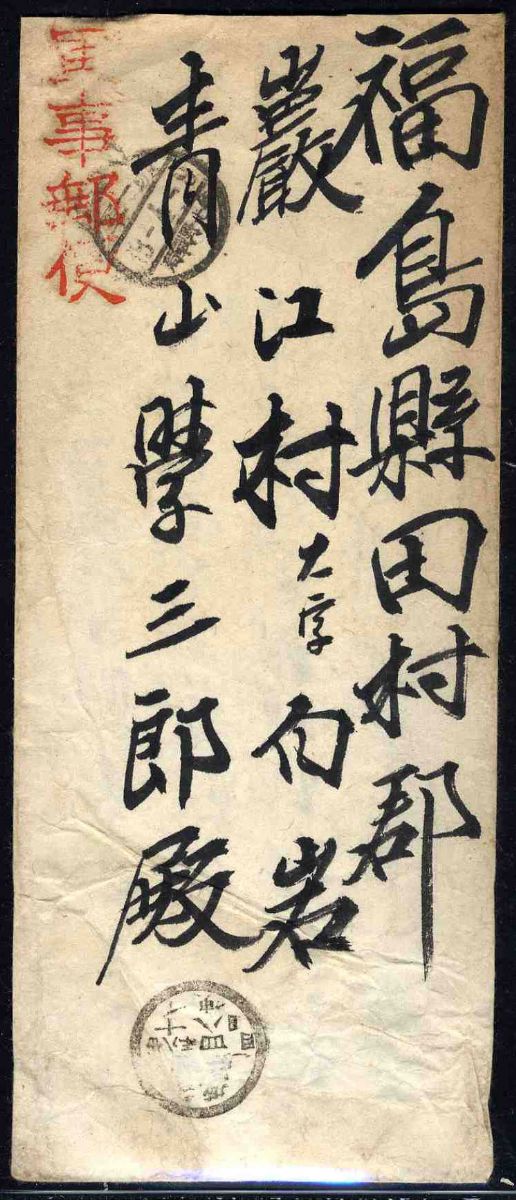 福島縣田村郡
巖江村大字白岩
青山學三郎殿
軍事郵便